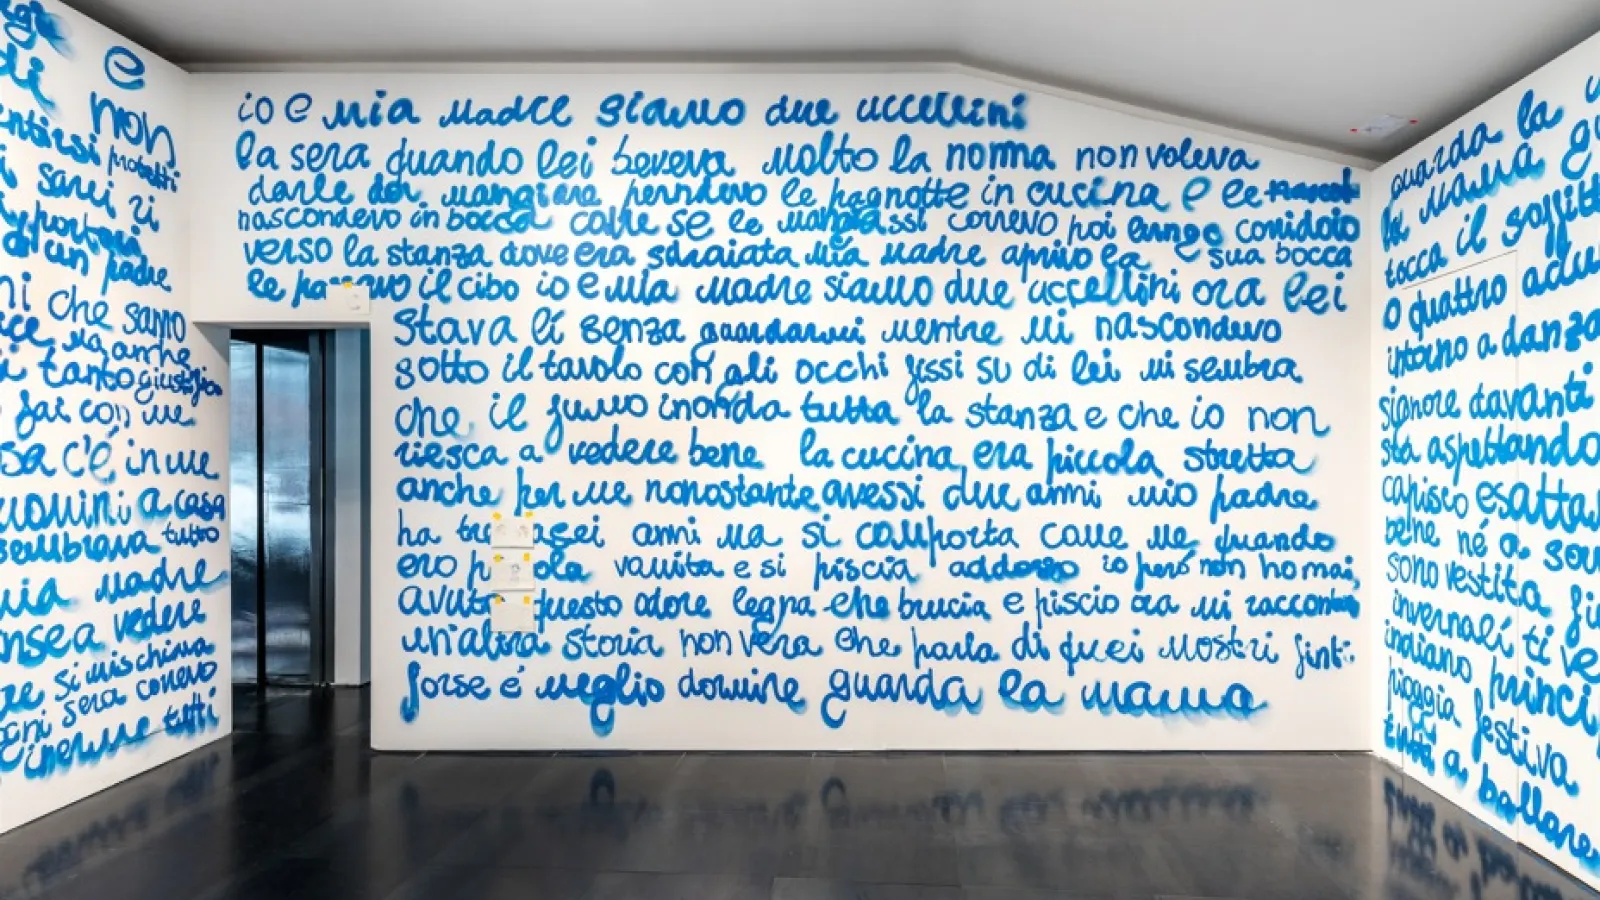 e
non
di
protetti
sarei
di un padre
che siamo
ma anche
tanto giustizia
fai con me
c'é in me
uomini a casa
sembrava tutto
mia madre
vedere
si mischiava
sera correvo
tutti
io e mia madre siamo due uccellini
la sera quando lei beveva molto la nonna non voleva
darle da mangiare prendevo le pagnotte in cucina e le
nascondevo in bocca come se le mangiassi correvo poi lungo corridoio
verso la stanza dove era sdraiata mia madre aprivo la sua bocca
le passavo il cibo io e mia madre siamo due uccellini ora lei
stava lí senza guardarmi mentre mi nascondevo
sotto il tavolo con gli occhi fissi su di lei mi sembra
che il fumo inonda tutta la stanza e che io non
riesca a vedere bene la cucina era piccola stretta
anche per me nonostante avessi due anni mio padre
ha anni ma si comporta come me quando
ero vomita e si piscia addosso io peró non ho mai
questo odore legna che brucia e piscio ora mi racconta
un'altra storia non vera che parla di quei mostri finti
forse é meglio dormire guarda la mamma
guarda la
la mamma
tocca il
o quattro
intorno a danza
signore davanti
sta aspettando
capisco
bene né a
sono vestita
invernali ti
indiano
pioggia festiva
tutti a ballare